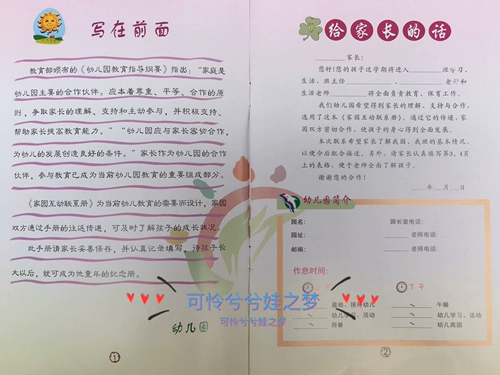 写在前面
教育部颁布的《幼儿园教育指导纲要》指出：“家庭是
幼儿园主要的合作伙伴。应本着尊重、平等、合作的原
则，争取家长的理解、支持和主动参与，并积极支持、
帮助家长提高教育能力。”“幼儿园应与家长密切合作，
为幼儿的发展创造良好的条件。”家长作为幼儿园的合作
伙伴，参与教育已成为当前幼儿园教育的重要组成部分。
《家园互动联系册》为当前幼儿教育的需要而设计，家园
双方通过手册的往返传递，可及时了解孩子的成长状况。
此手册请家长妥善保存，并认真记录填写，待孩子长
大以后，就可成为他童年的纪念册。
幼儿园
①
给家长的话
家长：
您好！您的孩子这学期将进入 班学习，
生活，班主任 、 老师和
生活老师 将全面负责教育、保育工作。
我们幼儿园希望得到家长的理解、支持与合作，
选用了这本《家园互动联系册》，通过它的传递，家
园双方密切合作，使孩子的身心得到全面发展。
本次联系希望家长了解我园、我班的基本情况，
以便今后配合接送。另外，请家长认真填写第3、4页
上的表格，便于老师全面了解孩子。
谢谢您的合作！
年 月 日
幼儿园简介
园名： 园长室电话：
园址： 老师电话：
邮编： 老师电话：
作息时间：
上午 下午
晨检、接待幼儿 午睡
幼儿学习、活动 幼儿学习、活动
用餐 幼儿离园
②
可怜兮兮娃之梦
可怜兮兮娃之梦